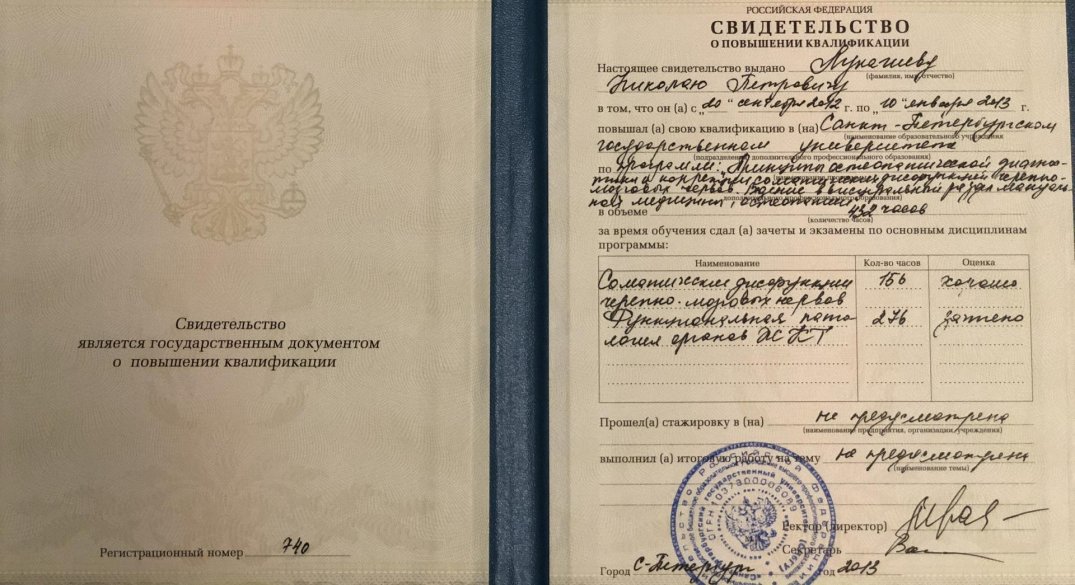 Свидетельство
является государственным документом
о повышении квалификации
Регистрационный номер 740
РОССИЙСКАЯ ФЕДЕРАЦИЯ
СВИДЕТЕЛЬСТВО
О ПОВЫШЕНИИ КВАЛИФИКАЦИИ
Настоящее свидетельство выдано Лукачиеву
(фамилия, имя, отчество)
Николаю Петровичу
в том, что он (а) с „20“ сентября 2012 г. по „10“ января 2013 г.
повышал (а) свою квалификацию в (на) Санкт-Петербургском
(наименование образовательного учреждения
государственном университете
(подразделения) дополнительного профессионального образования)
по программе: „Принципы остеопатической диагнос-
тики и коррекции соматических дисфункций черепно-
мозговых нервов. Ведение в висцеральный раздел мануаль-
ной медицины, остеопатии
дополнительного профессионального образования)
в объеме 432 часов
(количество часов)
за время обучения сдал (а) зачеты и экзамены по основным дисциплинам
программы:
Наименование Кол-во часов Оценка
Соматические дисфункции 156 хорошо
черепно-мозговых нервов
Функциональная пато 276 зачтено
логия органов ЖКТ
Прошел(а) стажировку в (на) не предусмотрена
(наименование предприятия, организации, учреждения)
выполнил (а) итоговую работу на тему не предусмотрена
(наименование темы)
ОГРН 1037800006089
Ректор (директор)
Секретарь
Город С-Петербург год 2013